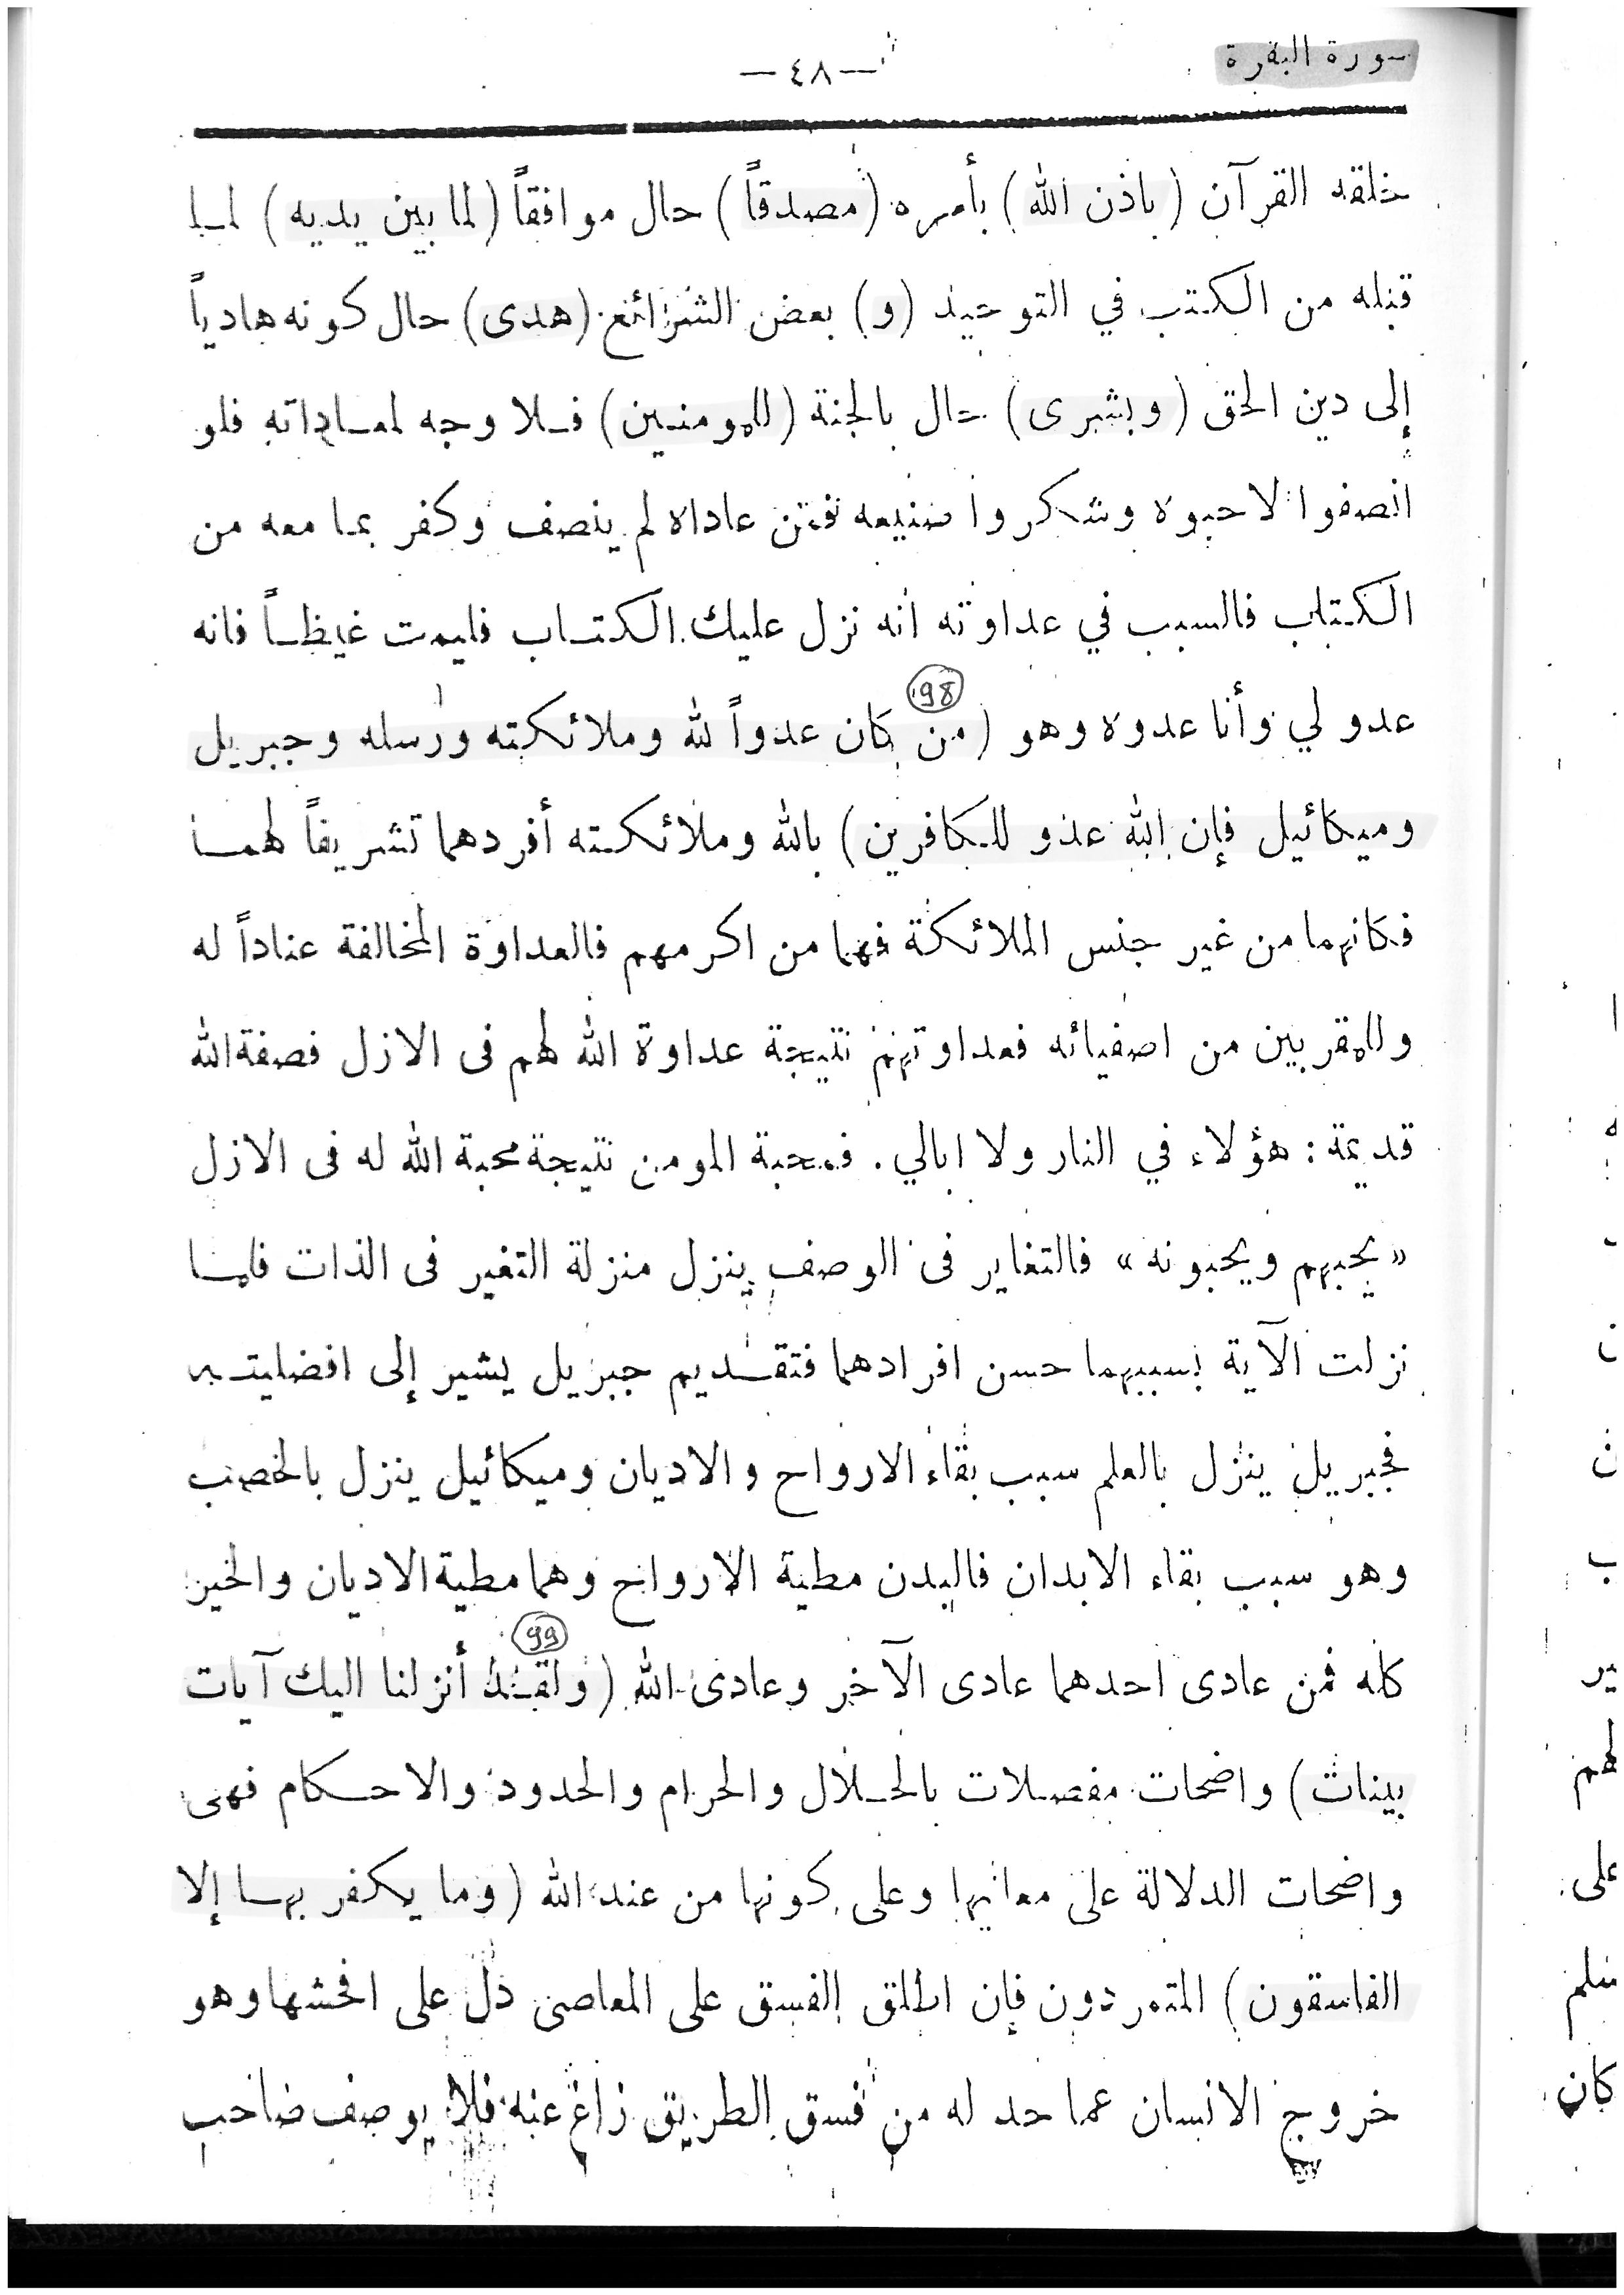 سورة البقرة
— ٤٨ —
خلقه القرآن (باذن الله) بأمره (مصدقاً) حال موافقاً (لما بين يديه) لما
قبله من الكتب في التوحيد (و) بعض الشرائع (هدى) حال كونه هادياً
إلى دين الحق (وبشرى) حال بالجنة (للمومنين) فلا وجه لمعاداته فلو
انصفوا لاحبوه وشكروا صنيعه فمن عاداه لم ينصف وكفر بما معه من
الكتاب فالسبب في عداوته انه نزل عليك الكتاب فليمت غيظاً فانه
98
عدو لي وأنا عدوه وهو (من كان عدواً لله وملائكته ورسله وجبريل
وميكائيل فإن الله عدو للكافرين) بالله وملائكته أفردهما تشريفاً لهما
فكانهما من غير جنس الملائكة فهما من اكرمهم فالعداوة المخالفة عناداً له
وللمقربين من اصفيائه فعداوتهم نتيجة عداوة الله لهم فى الازل فصفة الله
قديمة : هؤلاء في النار ولا ابالي . فمحبة المومن نتيجة محبة الله له فى الازل
«يحبهم ويحبونه» فالتغاير فى الوصف ينزل منزلة التغير فى الذات فلما
نزلت الآية بسببهما حسن افرادهما فتقديم جبريل يشير إلى افضليته
فجبريل ينزل بالعلم سبب بقاء الارواح والاديان وميكائيل ينزل بالخصب
وهو سبب بقاء الابدان فالبدن مطية الارواح وهما مطية الاديان والخير
99
كله فمن عادى احدهما عادى الآخر وعادى الله (ولقد أنزلنا اليك آيات
بينات) واضحات مفصلات بالحلال والحرام والحدود والاحكام فهى
واضحات الدلالة على معانيها وعلى كونها من عند الله (وما يكفر بها إلا
الفاسقون) المتمردون فإن اطلق الفسق على المعاصى دل على افحشها وهو
خروج الانسان عما حد له من فسق الطريق زاغ عنه فلا يوصف صاحب